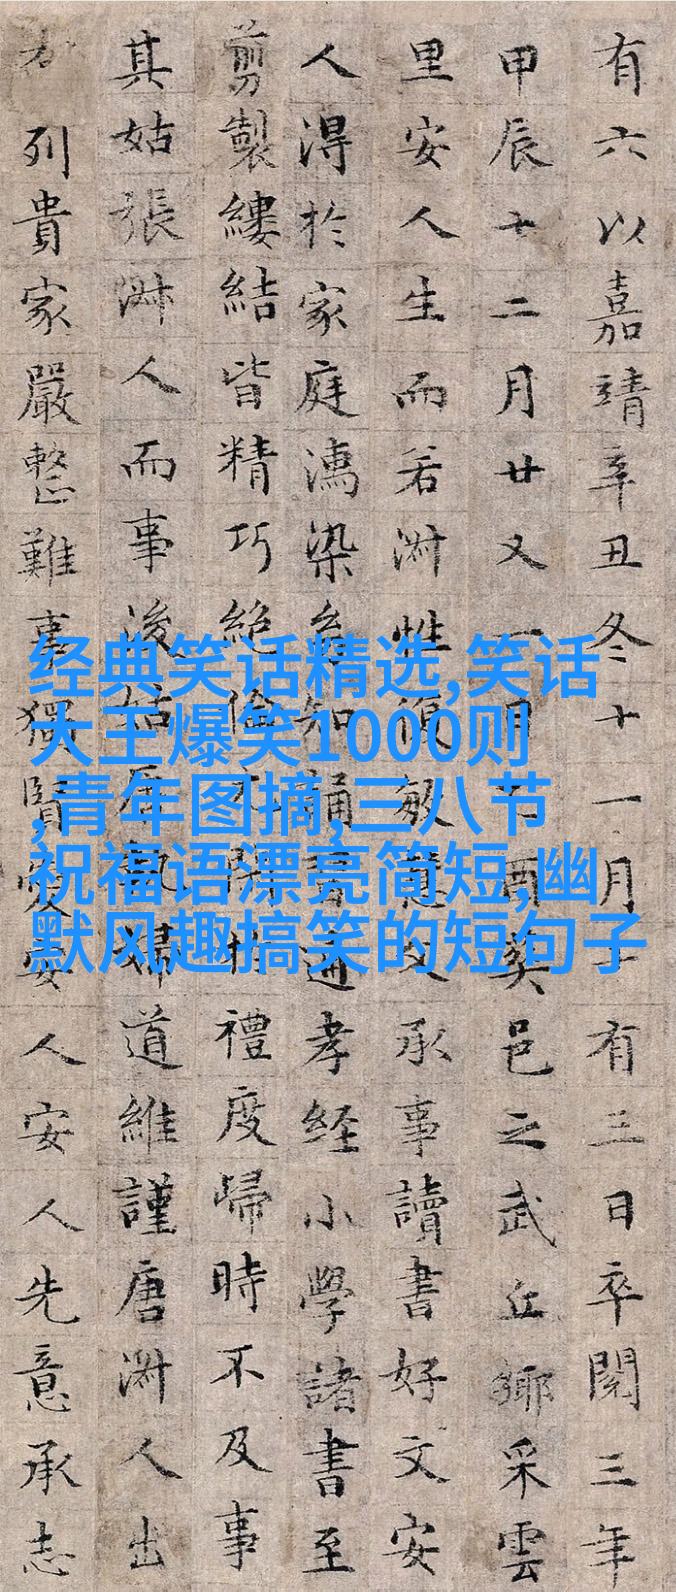 有六以嘉靖辛丑冬十一月十有三日卒閱三年
甲辰十二月廿又一日酉葬邑之武丘鄉采雲
里安人生而若淑性復敏慧父承事讀書好文安
人淂於家庭濡染能知誦習通孝經小學諸書至
剪製縷結皆精巧絕倫不禮度歸時不及事
其姑張淑人而事後姑唐氏婦道維謹唐淑人出
列貴家嚴整難事獨賢愛安人安人先意承志
经典笑话精选,笑话
大王爆笑1000则
,青年图摘,三八节
祝福语漂亮简短,幽
默风趣搞笑的短句子